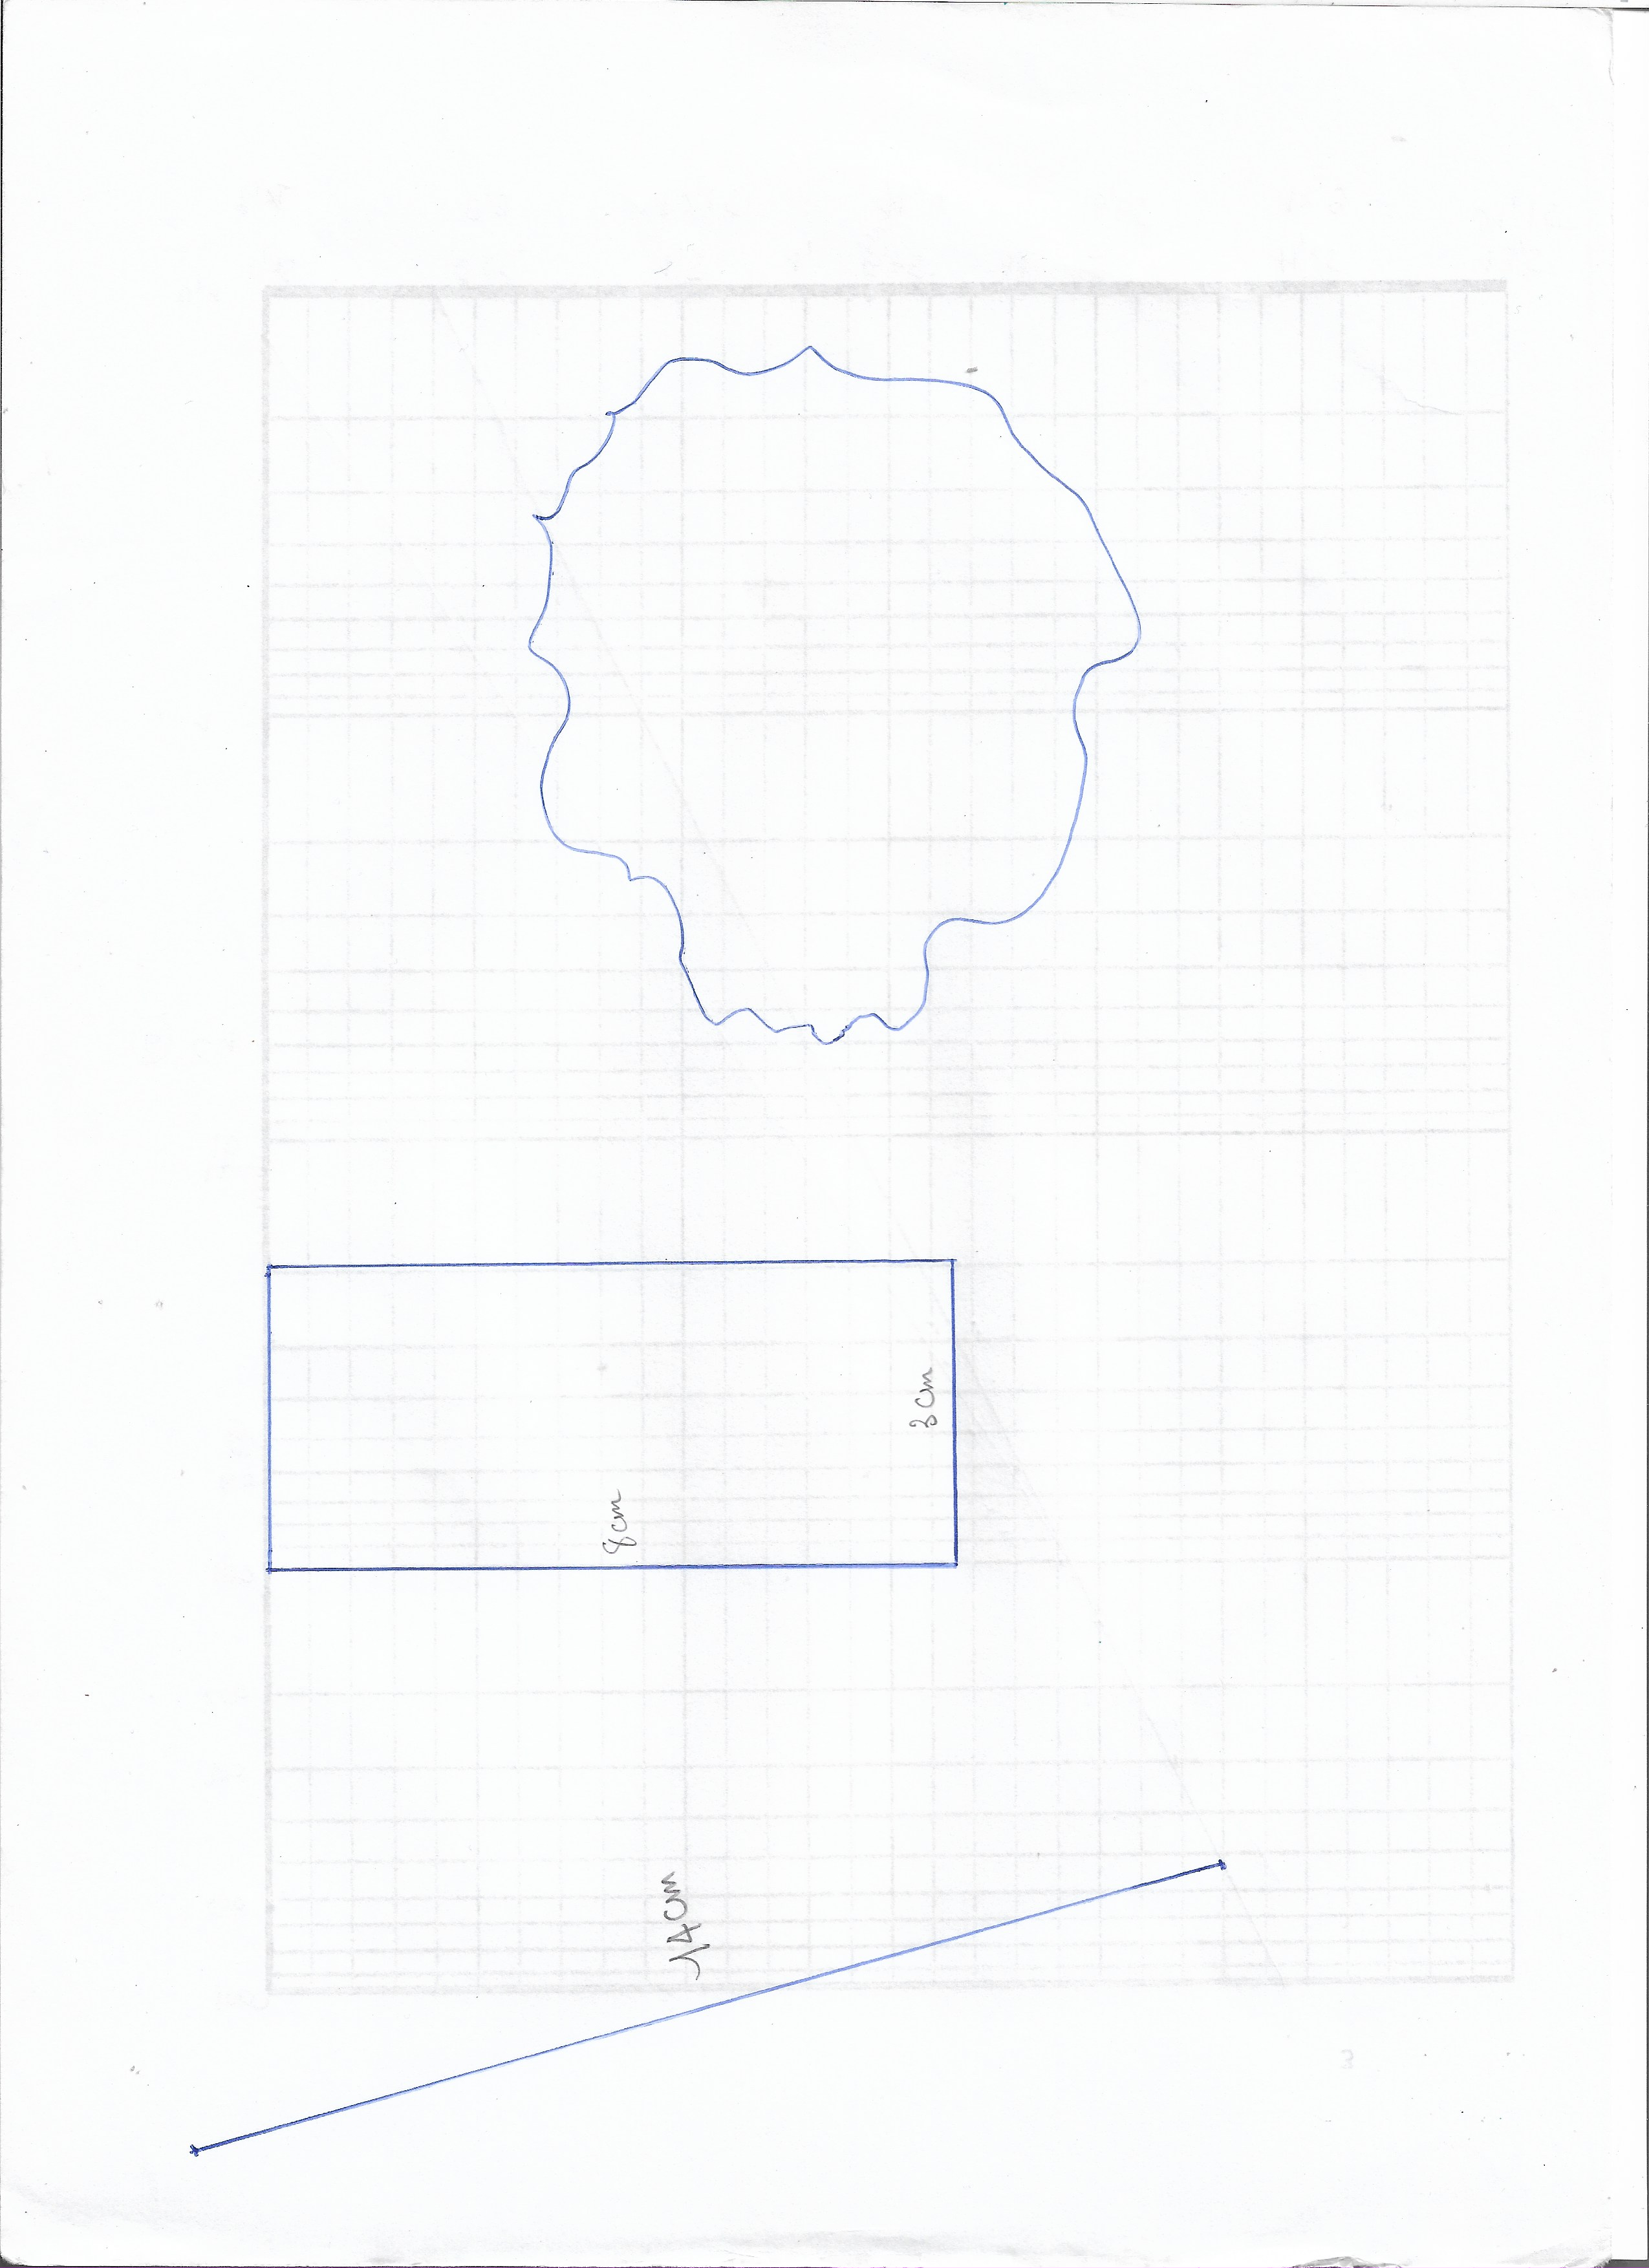 3cm
8cm
14cm